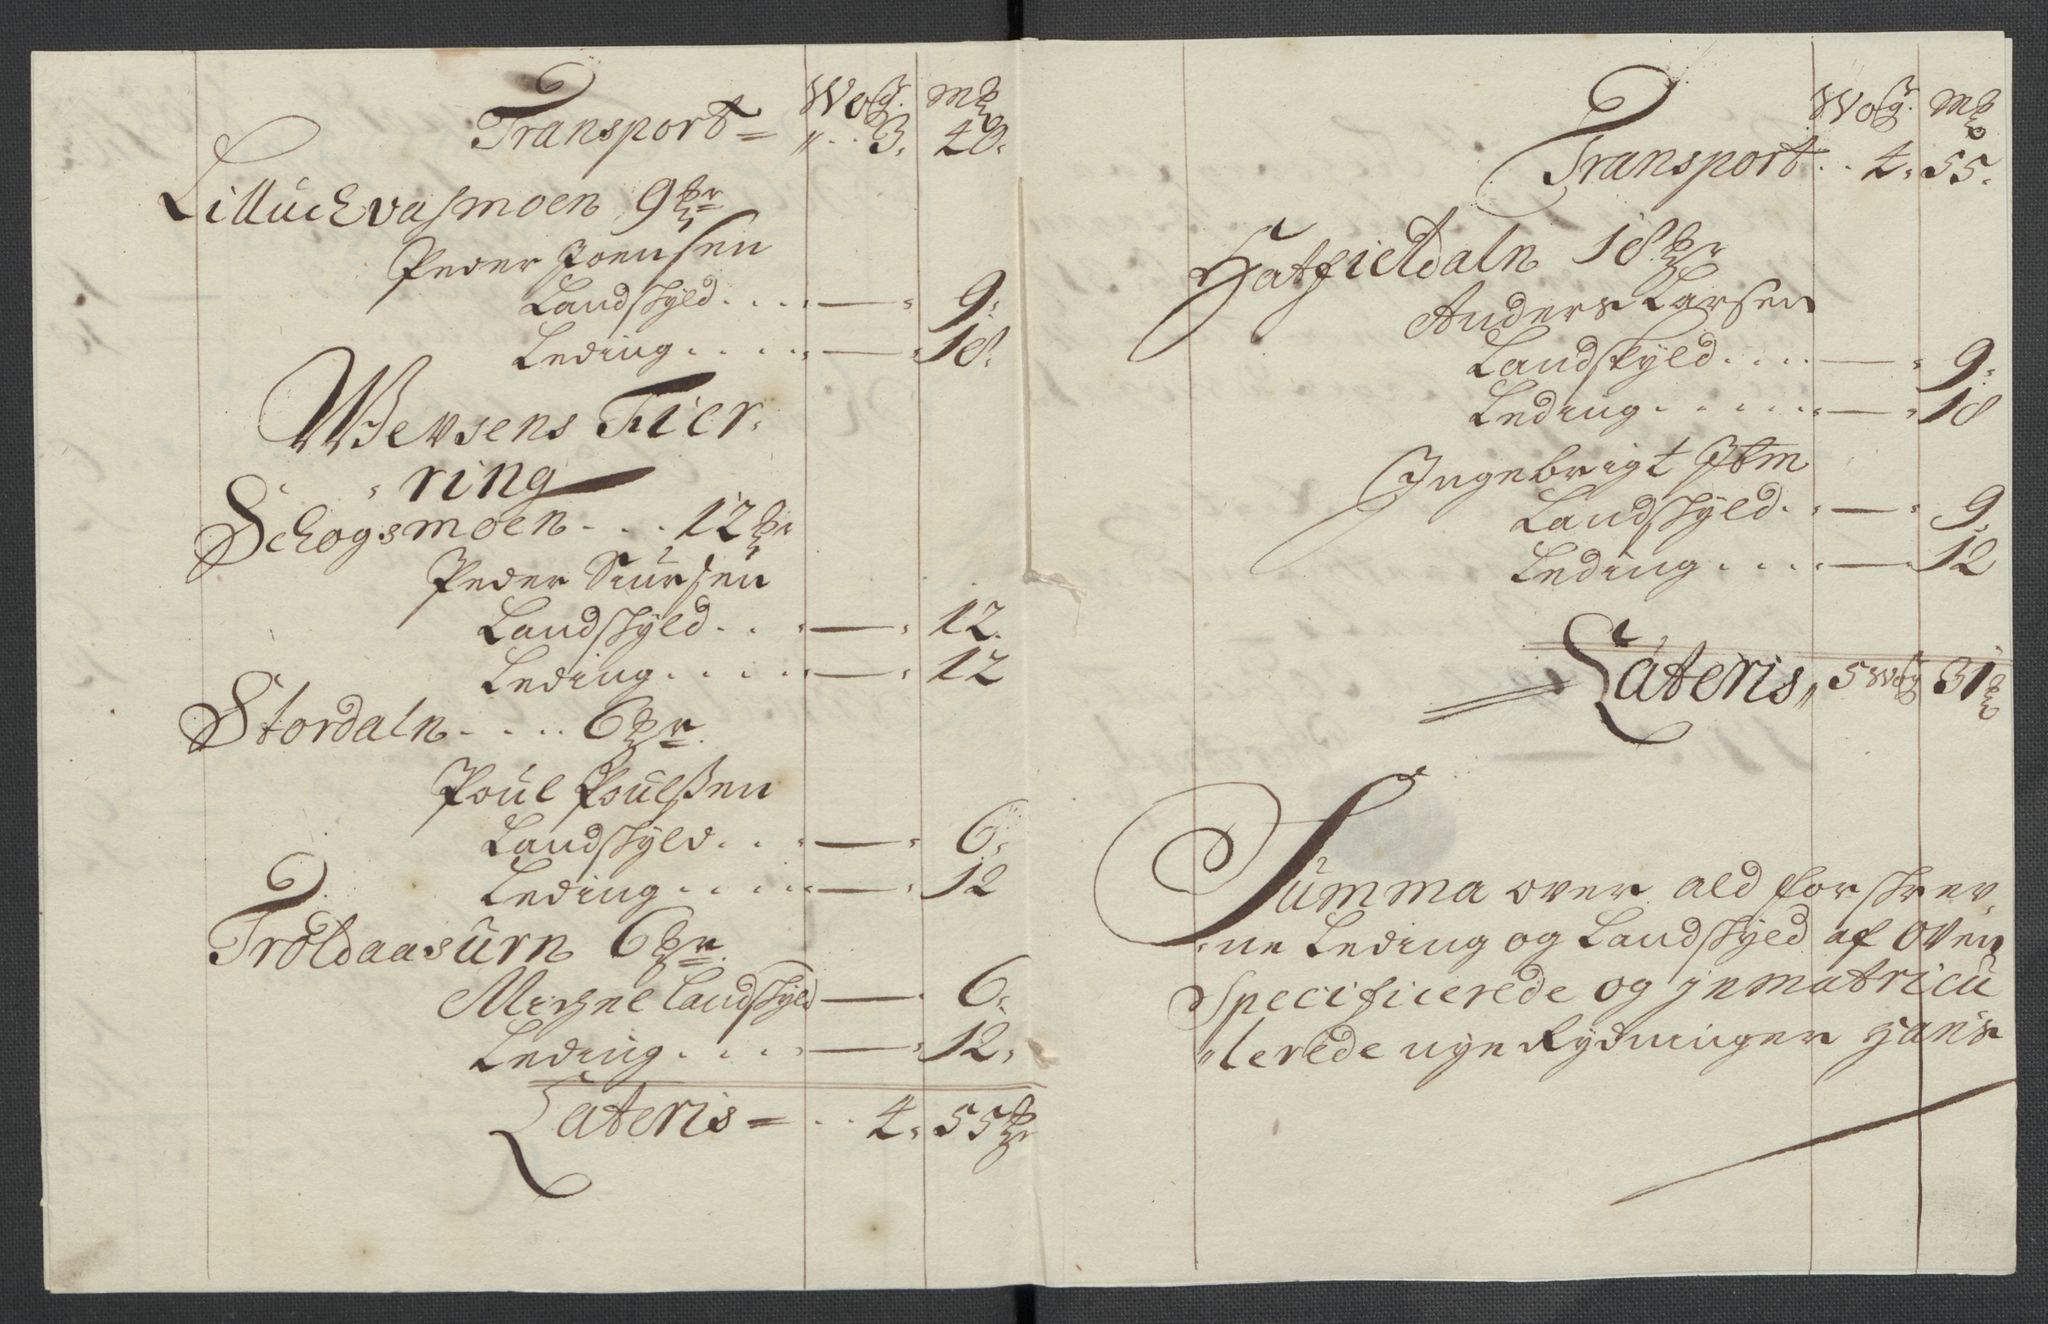 Wog. M℔
Transport = „ . . 3. 40.
Lilluchvasmoen 9 ℔r
Peder Joensen
Landschyld . . . . — 9.
Leding . . . . . — 18.
Wevsens Fier-
ring
Schogsmoen . . . 12 ℔r
Peder Siursen
Landschyld . . . — 12.
Leding . . . . . — 12
Stordaln . . . . 6 ℔r.
Poül Poülßen
Landschyld . . . — 6.
Leding . . . . . — 12
Troldaasürn 6 ℔r.
Michel Landschyld — 6.
Leding . . . . — 12.
Lateris = . . 4. 55 ℔r
Wog. M℔
Transport . . 4. 55.
Hatfieldaln 18 ℔r
Anders Larsen
Landschyld . . . . — 9.
Leding . . . . . . — 18
Ingebrigt Ibm
Landschyld . . — 9.
Leding . . . . . — 12
Lateris „ 5 Wog 31 ℔
Summa over ald forschrev-
ne Leding og Landschyld af oven
Specificerede og jnmatricu
lerede nye Rydninger Hans